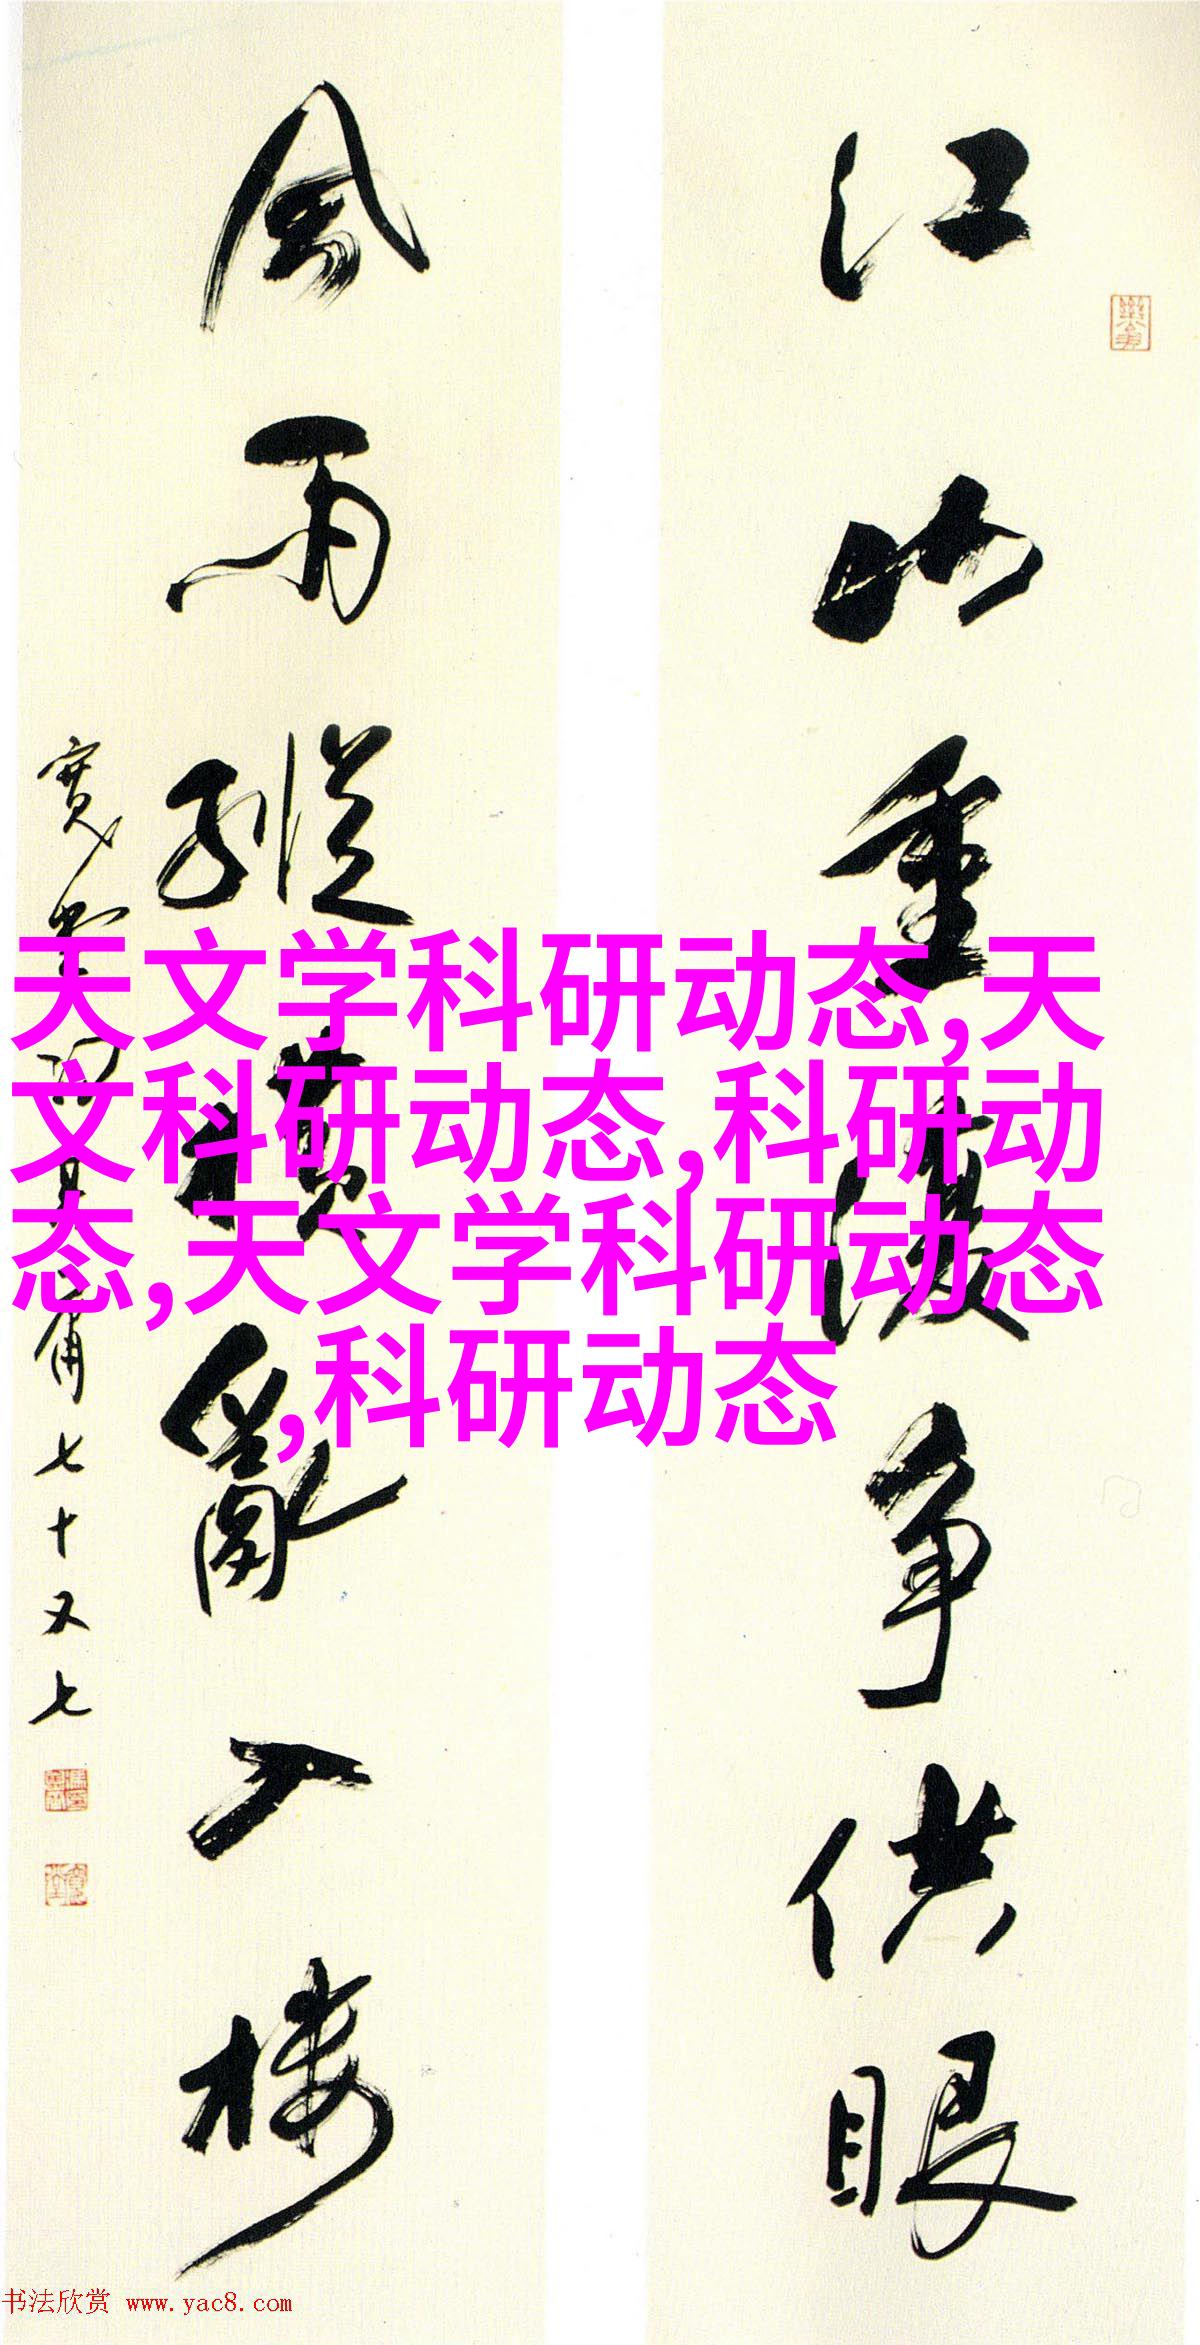 江山重復争供眼
風雨縱橫亂入楼
七十又七
天文学科研动态,天
文科研动态,科研动
态,天文学科研动态
,科研动态
书法欣赏 www.yac8.com